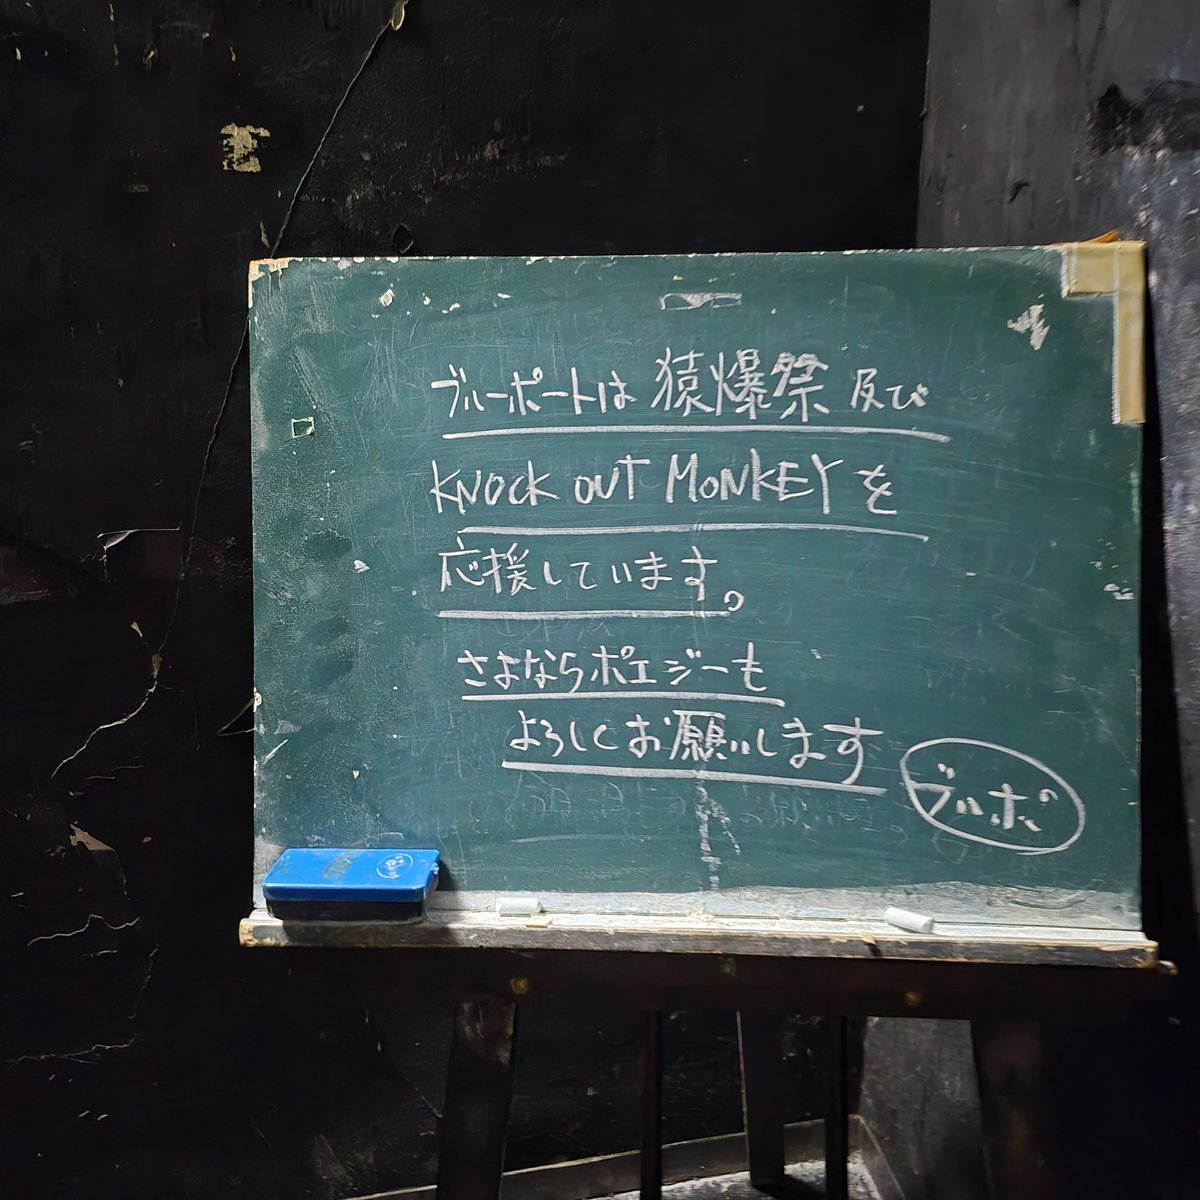 ブルーポートは猿爆祭及び
KNOCK OUT MONKEYを
応援しています。
さよならポエジーも
よろしくお願いします
ブルポ